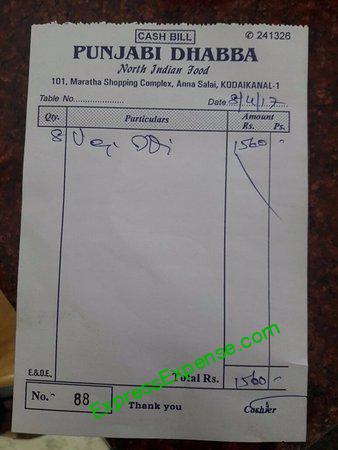 CASH BILL
✆ 241326
PUNJABI DHABBA
North Indian Food
101, Maratha Shopping Complex, Anna Salai, KODAIKANAL-1
Table No.................... Date 3/4/17
Qty. Particulars Amount
Rs. Ps.
8 1560 -
E.&O.E. Total Rs. 1560 -
No. 88
Thank you Cashier
ExpressExpense.com